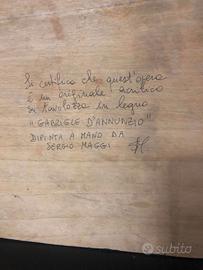 Si certifica che quest'opera
è un originale acrilico
su tavolozza in legno
"GABRIELE D'ANNUNZIO"
DIPINTA A MANO DA
SERGIO MAGGI
subito